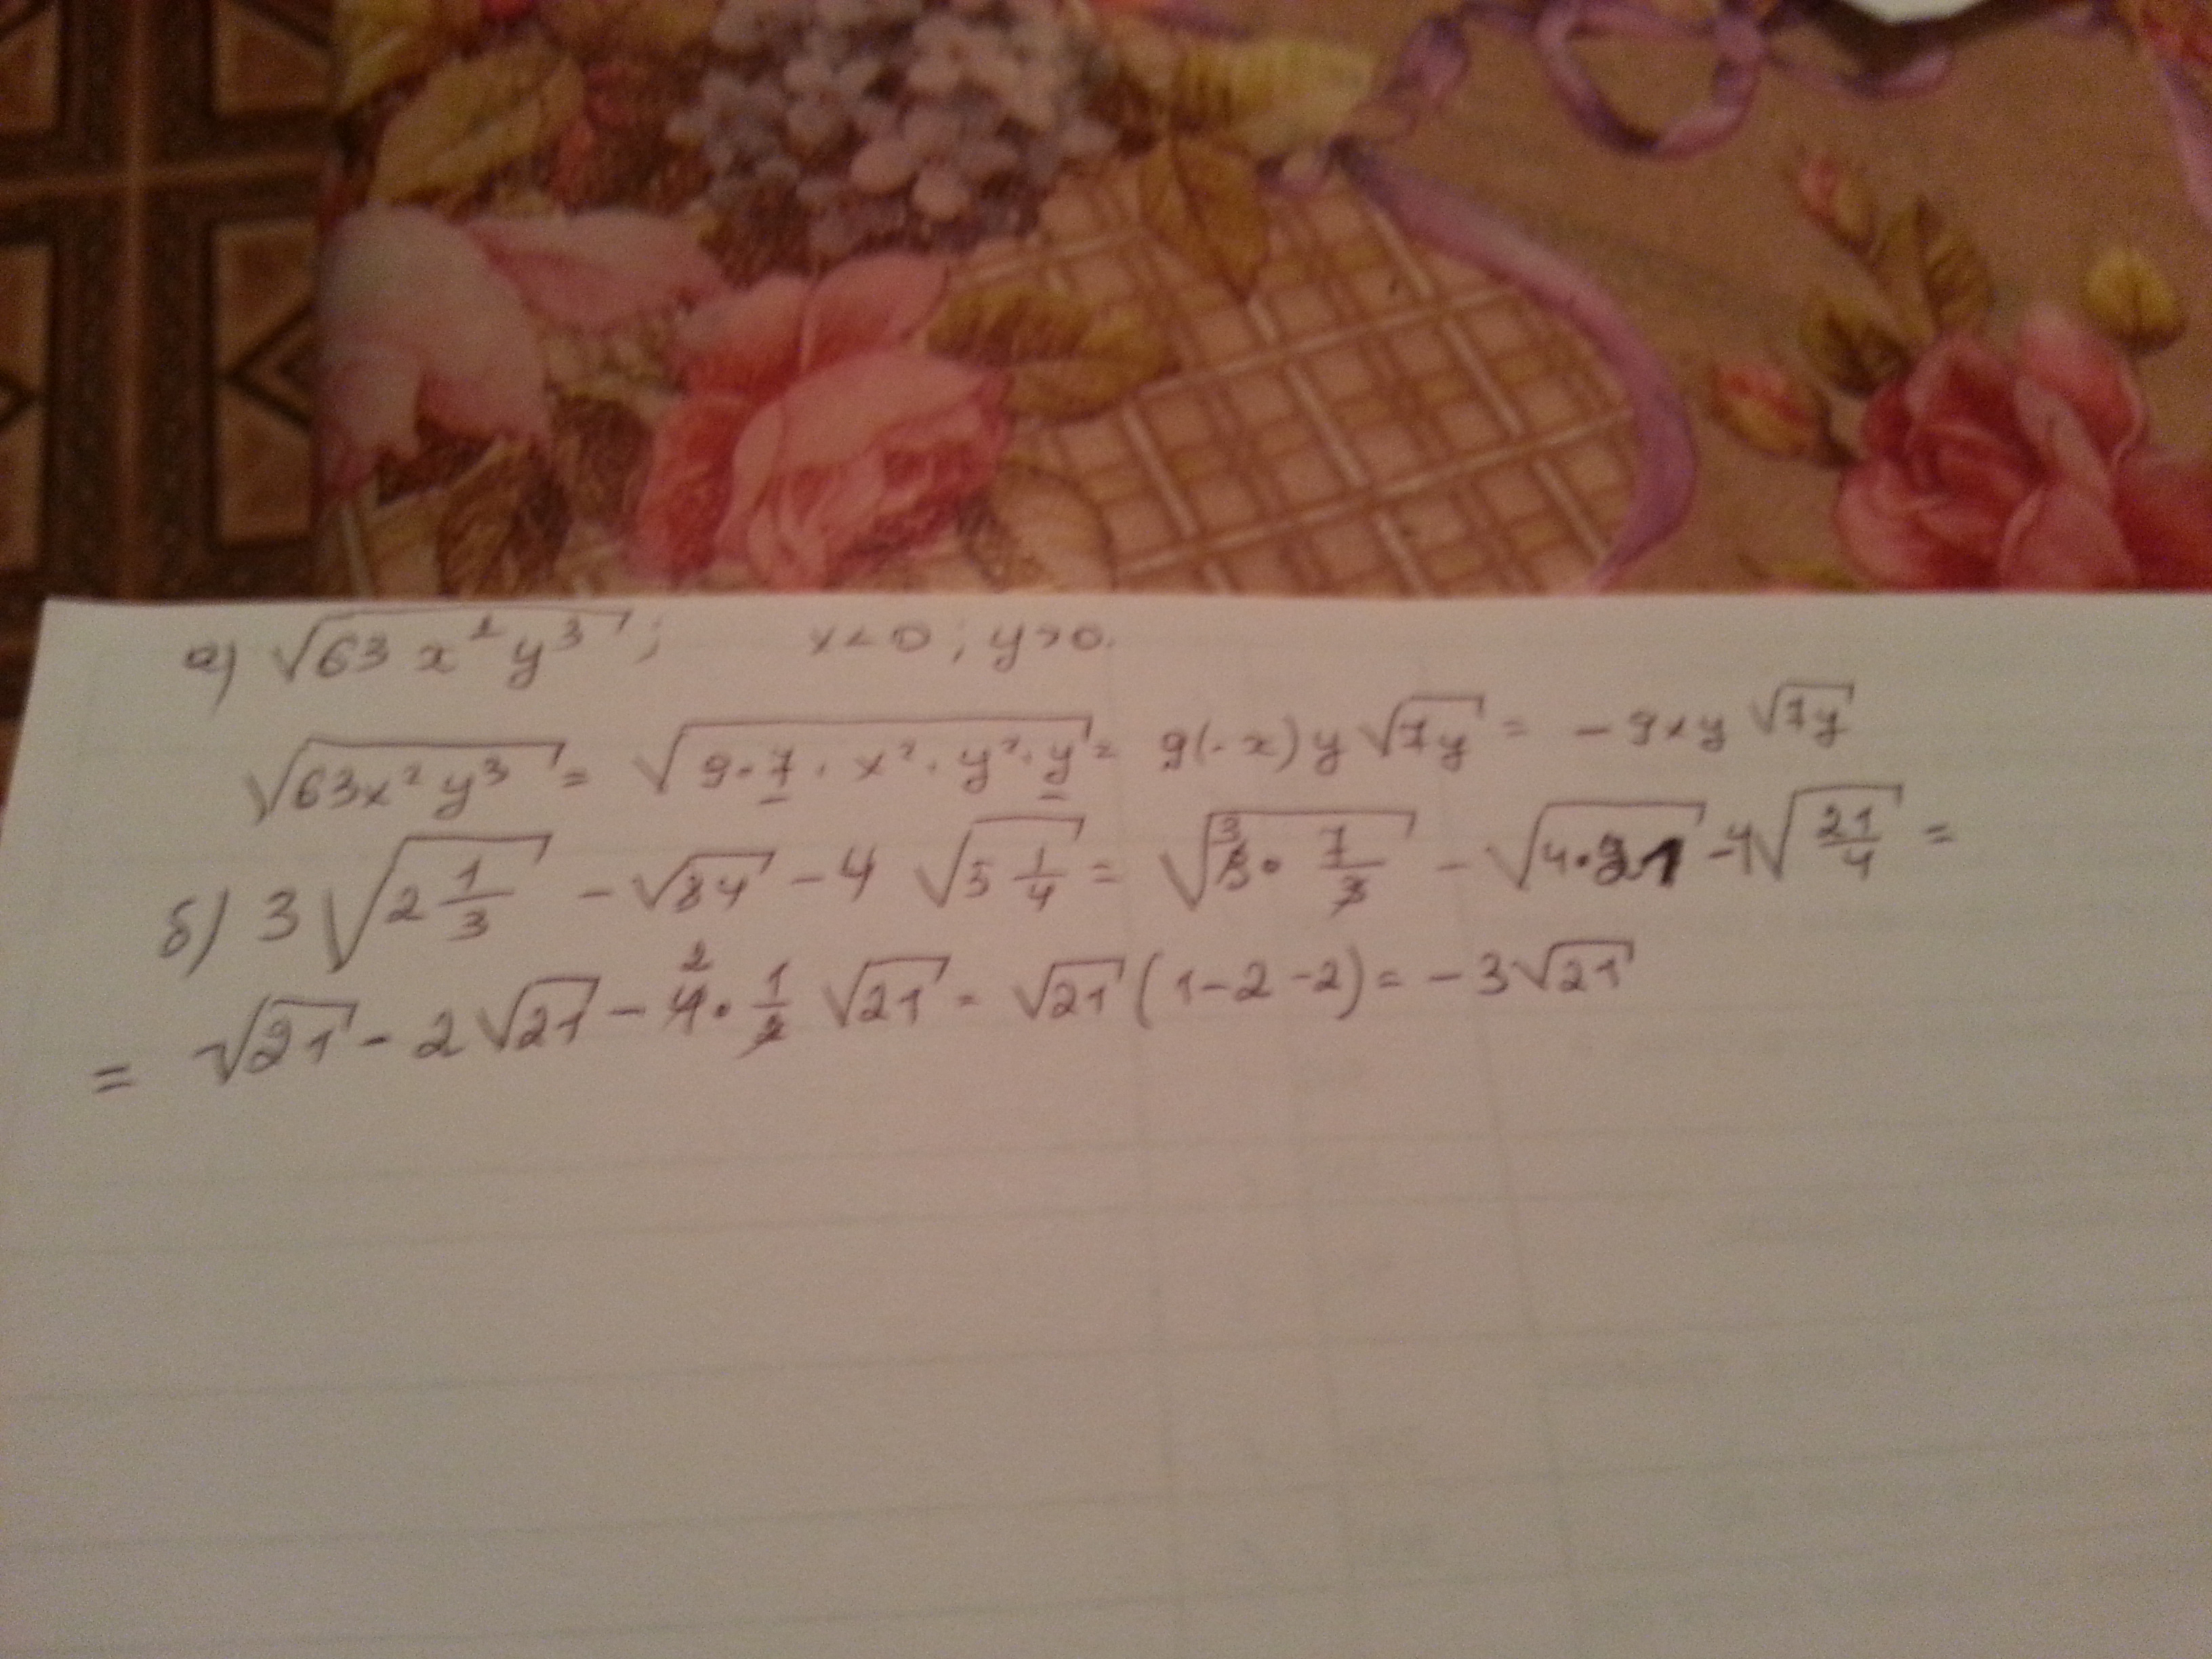 а) √63x²y³; x<0; y>0.
√63x²y³ = √9·7·x²·y²·y = 9(-x)y√7y = -9xy√7y
б) 3√2 1/3 - √84 - 4√5 1/4 = √9·7/3 - √4·21 - 4√21/4 =
= √21 - 2√21 - 4·1/2√21 = √21(1-2-2) = -3√21